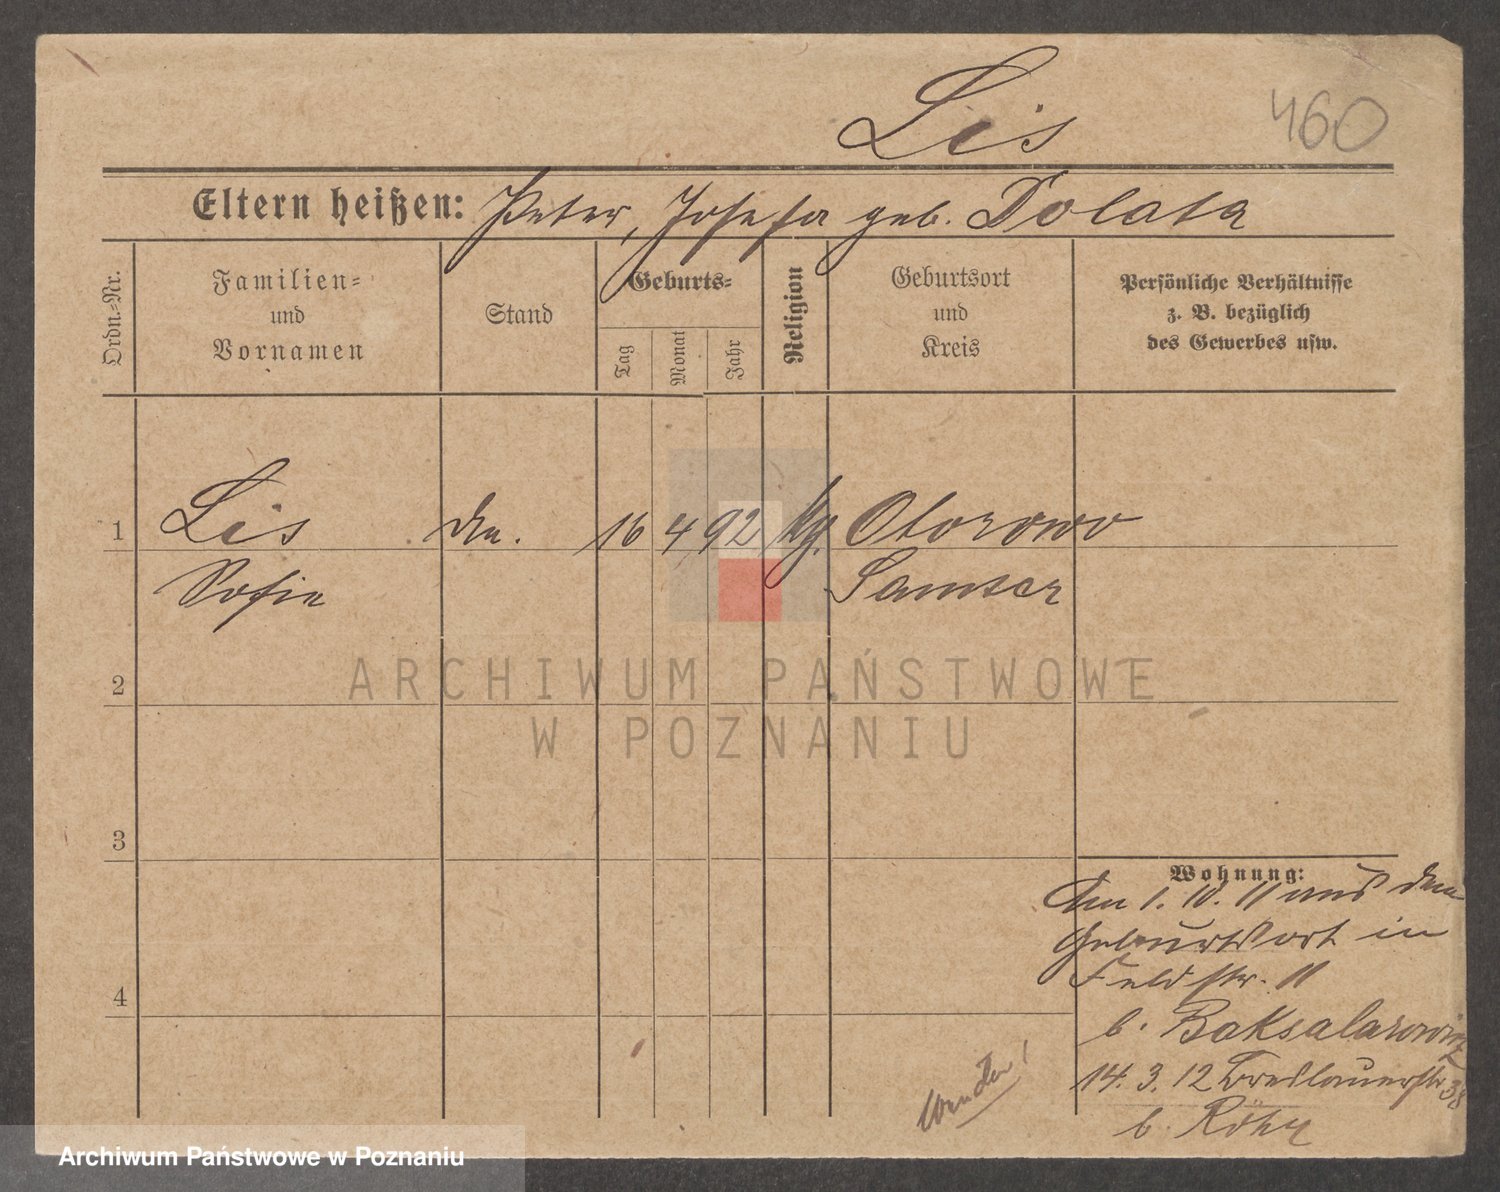 Lis
460
Eltern heißen: Peter, Josefa geb. Dolata
Ordn.=Nr.
Familien=
und
Vornamen
Stand
Geburts=
Tag
Monat
Jahr
Religion
Geburtsort
und
Kreis
Persönliche Verhältnisse
z. B. bezüglich
des Gewerbes usw.
1 Lis 16 4 92 kg. Otorowo
Sofie Samter
2
3
4
Wohnung:
Am 1. 10. 11 aus dem
Geburtsort in
Feldstr. 11
b. Baksalarowicz
14. 3. 12 Breslauerstr 38
b. Röhr
wenden!
ARCHIWUM PAŃSTWOWE
W POZNANIU
Archiwum Państwowe w Poznaniu